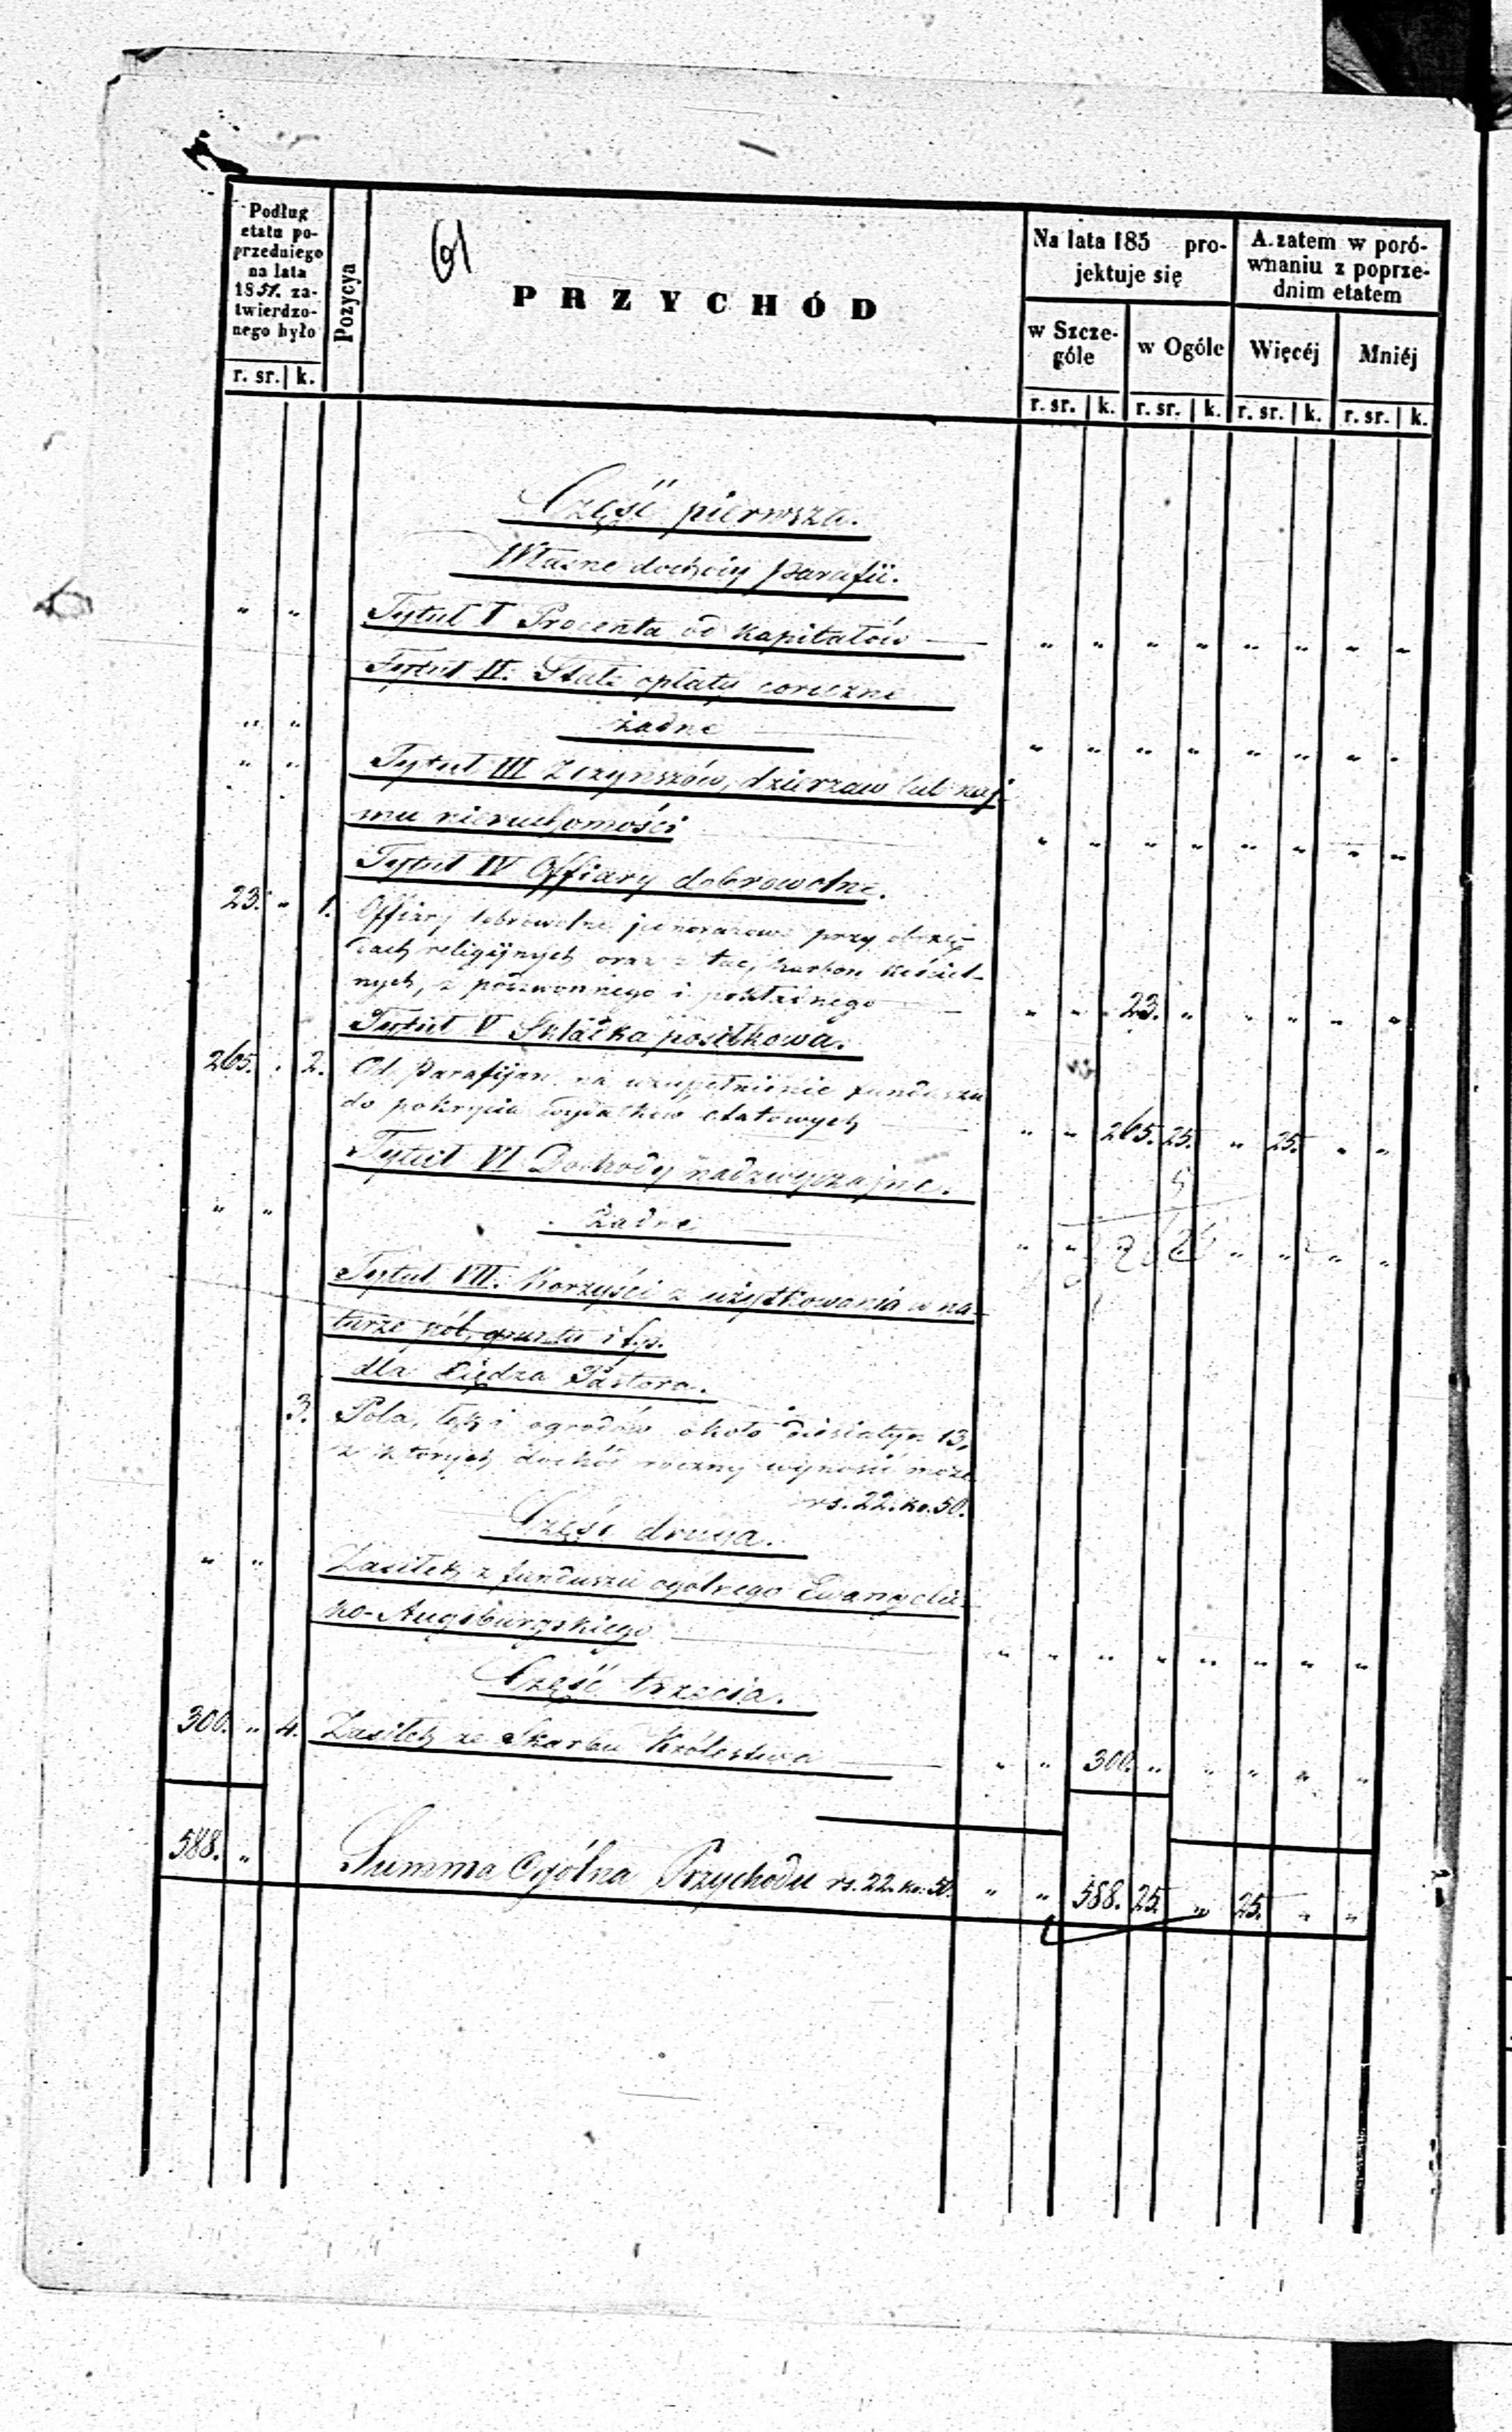 61
Podług
etatu po-
przedniego
na lata
1851. za-
twierdzo-
nego było
r. sr. k.
Pozycya
PRZYCHÓD
Na lata 185 pro-
jektuje się
w Szcze-
góle
w Ogóle
r. sr. k. r. sr. k.
A zatem w poró-
wnaniu z poprze-
dnim etatem
Więcéj Mniéj
r. sr. k. r. sr. k.
Część pierwsza.
Własne dochody Parafii.
„ „ Tytuł I Procenta od kapitałów „ „ „ „ „ „ „ „
Tytuł II. Stałe opłaty coroczne
„ „ żadne „ „ „ „ „ „ „ „
„ „ Tytuł III Z czynszów, dzierzaw lub naj-
mu nieruchomości „ „ „ „ „ „ „ „
Tytuł IV Offiary dobrowolne.
23. „ 1. Offiary dobrowolne jednorazowe przy obrzę-
dach religijnych oraz z tac, karbon kościel-
nych, z pozwonnego i pokładnego „ „ 23. „ „ „ „ „
Tytuł V Składka posiłkowa.
265. „ 2. Od Parafijan na uzupełnienie funduszu
do pokrycia wydatków etatowych „ „ 265. 25. „ 25. „ „
Tytuł VI Dochody nadzwyczajne.
„ „ żadne „ „ „ „ „ „ „ „
Tytuł VII. Korzyści z użytkowania w na-
turze pól, gruntu i t.p.
dla Xiędza Pastora.
3. Pola, łąk i ogrodów około diesiatyn 13,
z których dochód roczny wynosić może
rs. 22. ko. 50.
Część druga.
„ „ Zasiłek z funduszu ogólnego Ewangelic-
ko-Augsburgskiego „ „ „ „ „ „ „ „
Część trzecia.
300. „ 4. Zasiłek ze Skarbu Królestwa „ „ 300. „ „ „ „ „
588. „ Summa Ogólna Przychodu rs. 22. ko. 50. „ „ 588. 25. „ 25. „ „